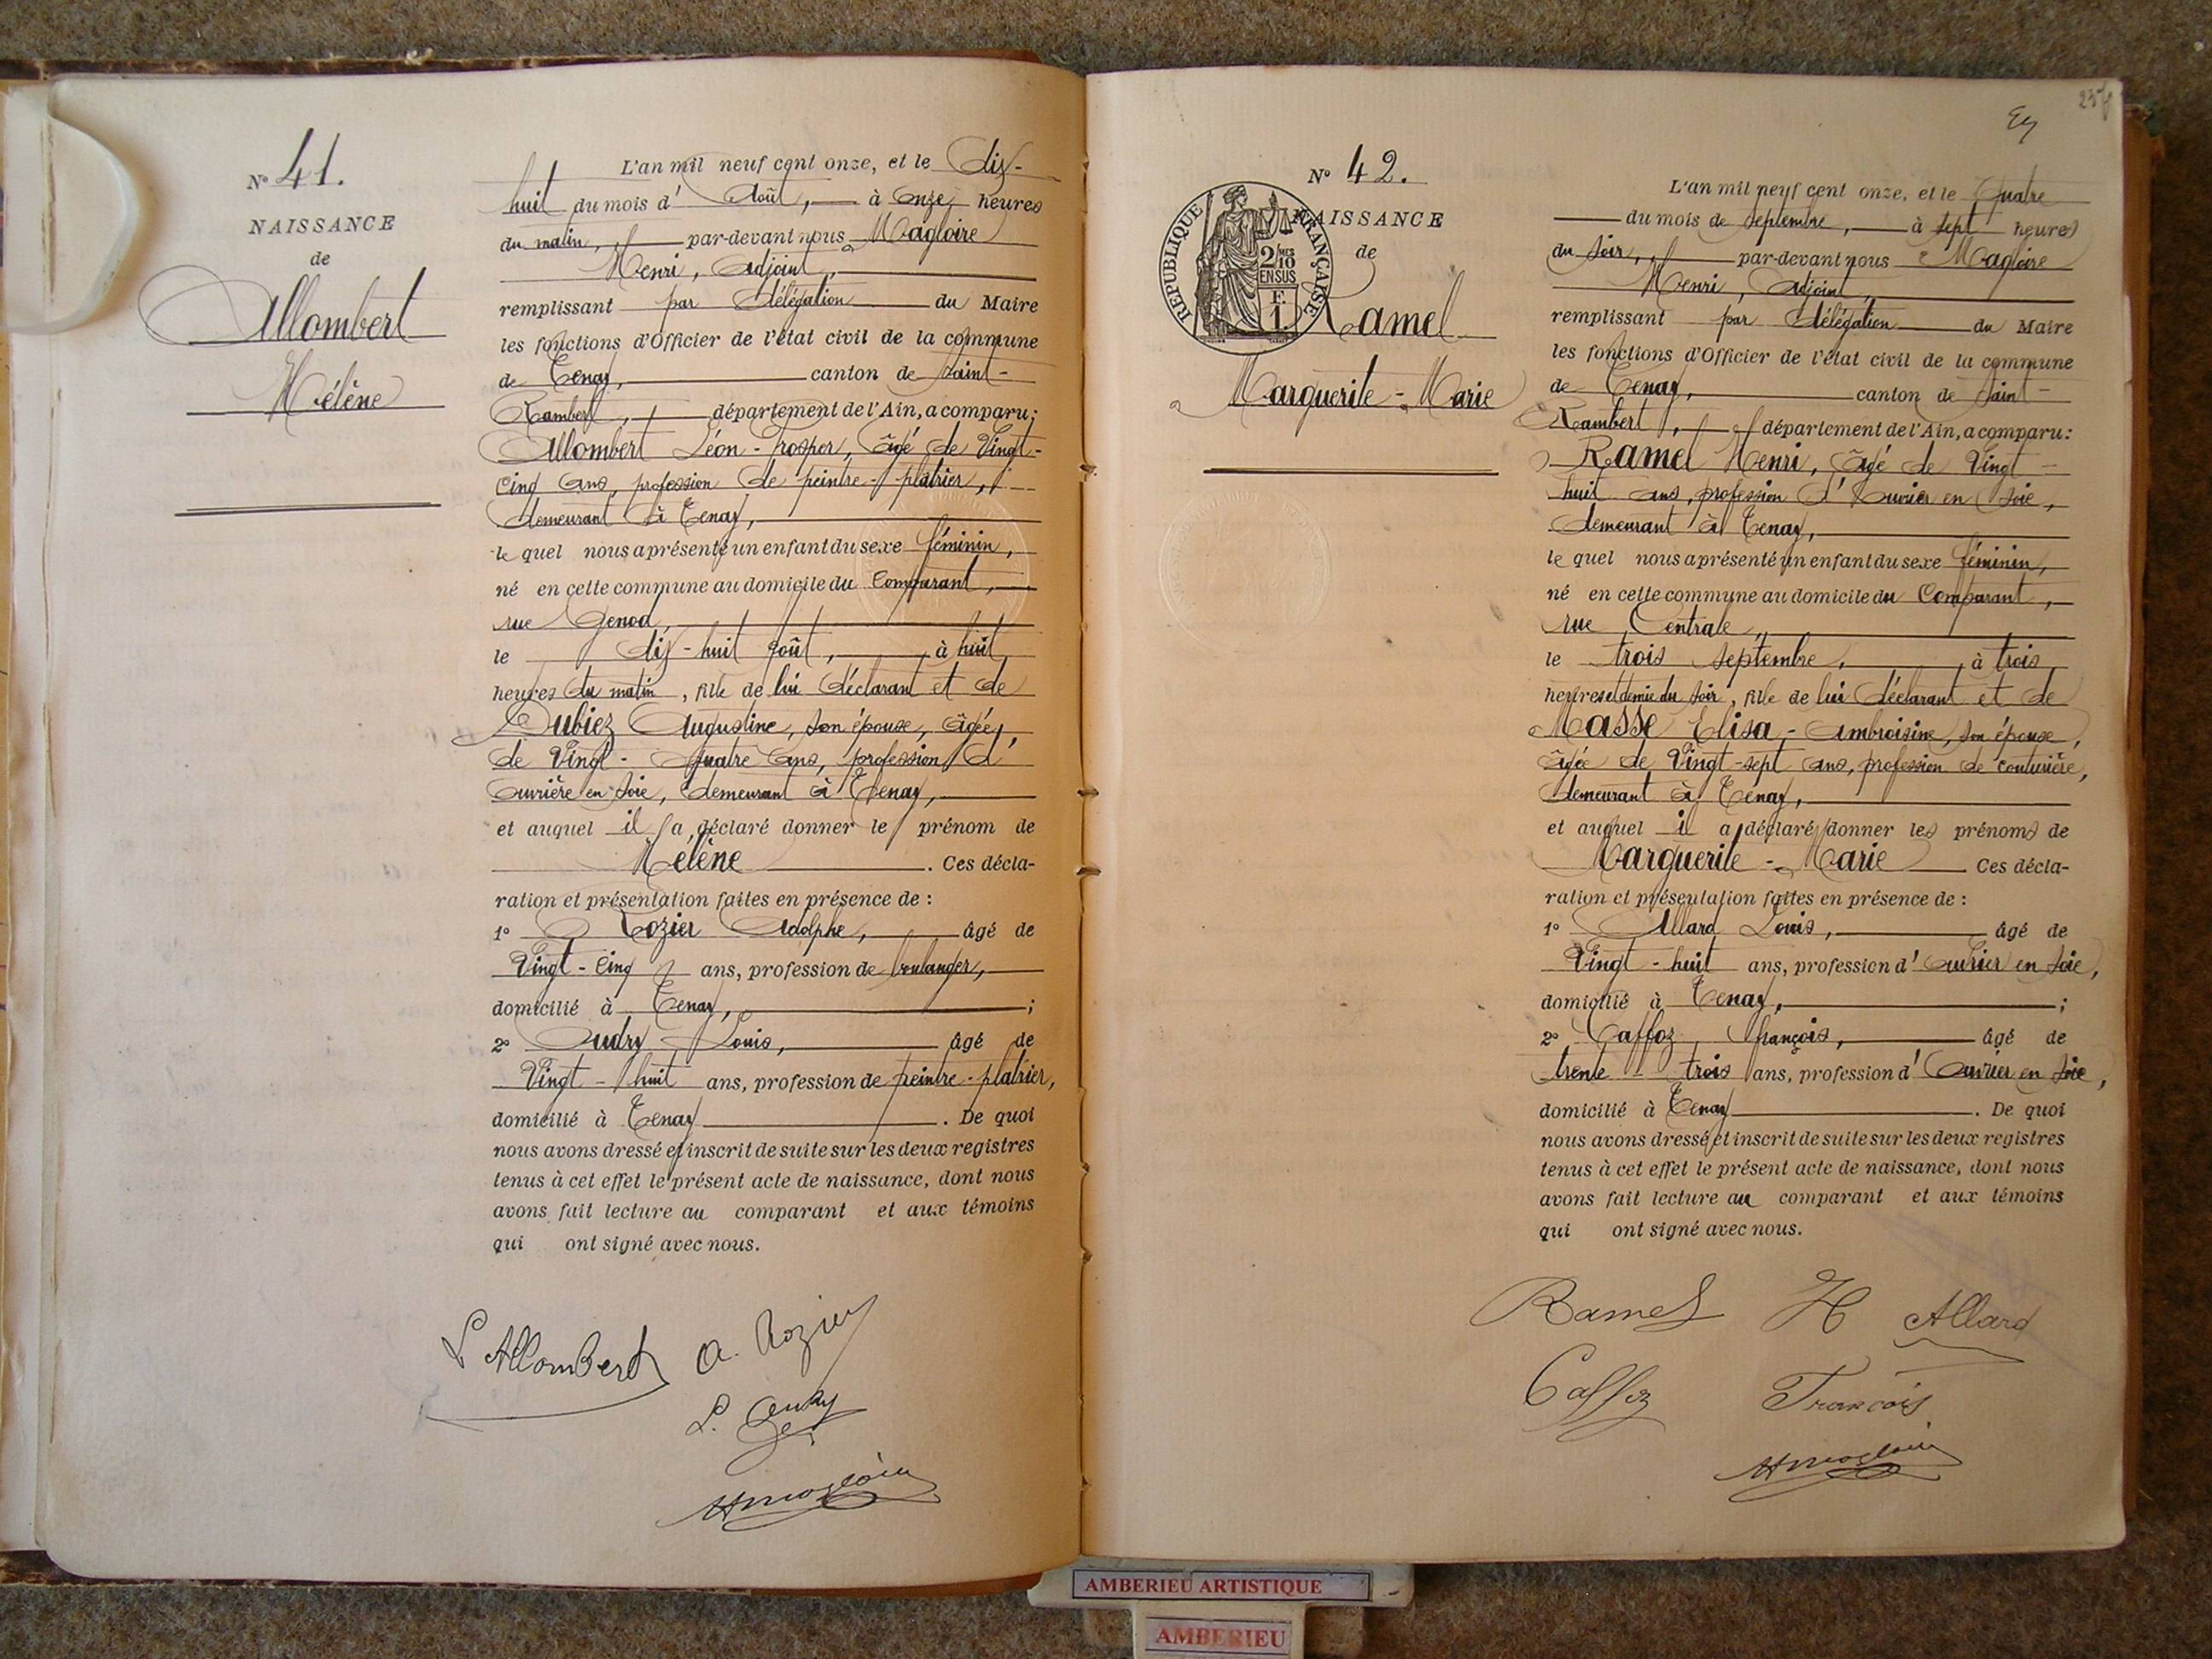 N° 41.
NAISSANCE
de
Allombert
Hélène
L'an mil neuf cent onze, et le Dix-
huit du mois d' Août, à Onze heures
du matin, par-devant nous Magloire
Henri, Adjoint,
remplissant par Délégation du Maire
les fonctions d'Officier de l'état civil de la commune
de Tenay, canton de Saint-
Rambert, département de l'Ain, a comparu:
Allombert Léon-Prosper, âgé de Vingt-
cinq ans, profession de peintre-plâtrier,
demeurant à Tenay,
le quel nous a présenté un enfant du sexe féminin,
né en cette commune au domicile du Comparant,
rue Genod,
le dix-huit août, à huit
heures du matin, fille de lui déclarant et de
Dubiez Augustine, son épouse, âgée
de Vingt-quatre ans, profession d'
Ouvrière en soie, demeurant à Tenay,
et auquel il a déclaré donner le prénom de
Hélène. Ces décla-
ration et présentation faites en présence de :
1° Rozier Adolphe, âgé de
Vingt-cinq ans, profession de boulanger,
domicilié à Tenay, ;
2° Oudry Louis, âgé de
Vingt-huit ans, profession de peintre-plâtrier,
domicilié à Tenay. De quoi
nous avons dressé et inscrit de suite sur les deux registres
tenus à cet effet le présent acte de naissance, dont nous
avons fait lecture au comparant et aux témoins
qui ont signé avec nous.
L Allombert A. Rozier
L. Oudry
H Magloire
N° 42.
NAISSANCE
de
RÉPUBLIQUE FRANÇAISE
2/10
EN SUS
F.
1.
Ramel
Marguerite-Marie
L'an mil neuf cent onze, et le Quatre
du mois de septembre, à sept heures
du soir, par-devant nous Magloire
Henri, Adjoint,
remplissant par Délégation du Maire
les fonctions d'Officier de l'état civil de la commune
de Tenay, canton de Saint-
Rambert, département de l'Ain, a comparu:
Ramel Henri, âgé de Vingt-
huit ans, profession d'Ouvrier en soie,
demeurant à Tenay,
le quel nous a présenté un enfant du sexe féminin,
né en cette commune au domicile du Comparant,
rue Centrale,
le trois septembre, à trois
heures et demie du soir, fille de lui déclarant et de
Masse Elisa-Ambroisine, son épouse,
âgée de Vingt-sept ans, profession de couturière,
demeurant à Tenay,
et auquel il a déclaré donner les prénoms de
Marguerite-Marie Ces décla-
ration et présentation faites en présence de :
1° Allard Louis, âgé de
Vingt-huit ans, profession d'Ouvrier en soie,
domicilié à Tenay, ;
2° Caffoz François, âgé de
trente-trois ans, profession d'Ouvrier en soie,
domicilié à Tenay. De quoi
nous avons dressé et inscrit de suite sur les deux registres
tenus à cet effet le présent acte de naissance, dont nous
avons fait lecture au comparant et aux témoins
qui ont signé avec nous.
Ramel H Allard
Caffoz François
H Magloire
AMBERIEU ARTISTIQUE
AMBERIEU